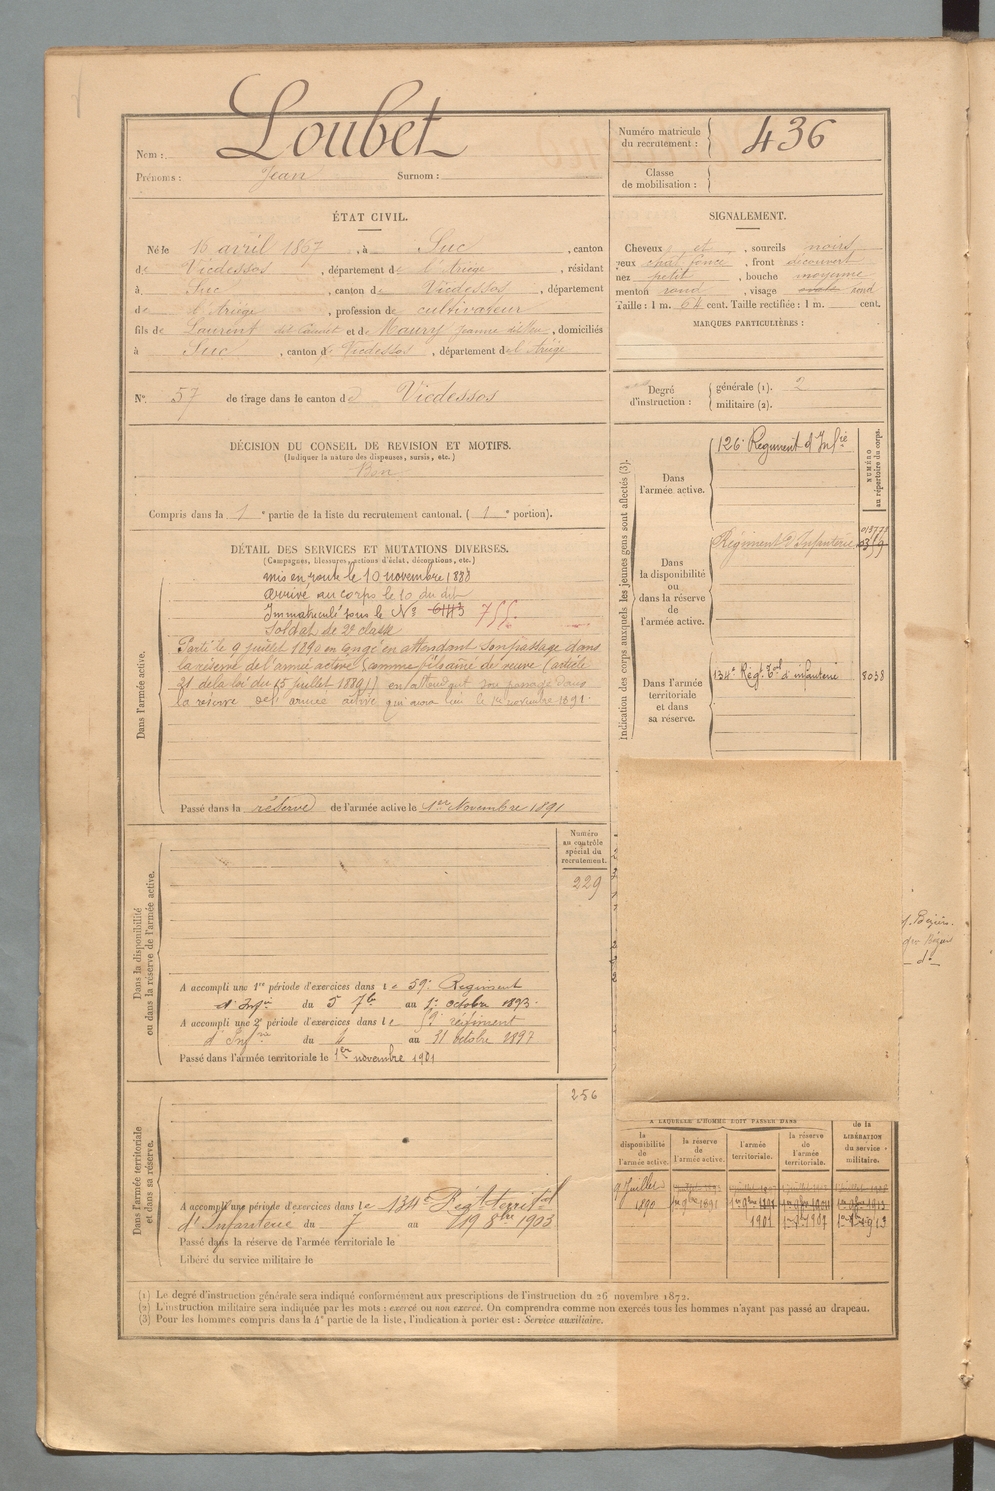 Nom : Loubet
Prénoms : Jean Surnom :
Numéro matricule du recrutement : 436
Classe de mobilisation :
ÉTAT CIVIL.
Né le 16 avril 1867, à Suc, canton
de Vicdessos, département de l'Ariège, résidant
à Suc, canton de Vicdessos, département
de l'Ariège, profession de cultivateur
fils de Laurent dit et de Maury Jeanne, domiciliés
à Suc, canton de Vicdessos, département de l'Ariège
SIGNALEMENT.
Cheveux et, sourcils noirs
yeux chat. foncé, front découvert
nez petit, bouche moyenne
menton rond, visage ovale rond
Taille : 1 m. 64 cent. Taille rectifiée : 1 m. cent.
MARQUES PARTICULIÈRES :
No. 57 de tirage dans le canton de Vicdessos
Degré d'instruction :
générale (1). 2
militaire (2).
DÉCISION DU CONSEIL DE REVISION ET MOTIFS.
(Indiquer la nature des dispenses, sursis, etc.)
Bon
Compris dans la 1e partie de la liste du recrutement cantonal. (1e portion).
DÉTAIL DES SERVICES ET MUTATIONS DIVERSES.
(Campagnes, blessures, actions d'éclat, décorations, etc.)
Dans l'armée active.
mis en route le 10 novembre 1888
arrivé au corps le 10 du dit
Immatriculé sous le No 755.
Soldat de 2e classe
Parti le 9 juillet 1890 en congé en attendant son passage dans
la réserve de l'armée active (comme fils aîné de veuve (article
21 de la loi du 15 juillet 1889)) en attendant son passage dans
la réserve de l'armée active qui aura lieu le 1er novembre 1891.
Passé dans la réserve de l'armée active le 1er Novembre 1891
Indication des corps auxquels les jeunes gens sont affectés (3).
NUMÉRO au répertoire du corps.
Dans l'armée active.
126e Regiment d'Infie
Dans la disponibilité ou dans la réserve de l'armée active.
Régiment d'Infanterie
Dans l'armée territoriale et dans sa réserve.
134e Régt Torial d'infanterie 8038
Dans la disponibilité ou dans la réserve de l'armée active.
Numéro au contrôle spécial du recrutement.
229
A accompli une 1re période d'exercices dans le 59e Regiment
d'Infie du 5 7bre au 1er octobre 1893.
A accompli une 2e période d'exercices dans le régiment
d'Infrie du 4 au 31 octobre 1897
Passé dans l'armée territoriale le 1er novembre 1901
Dans l'armée territoriale et dans sa réserve.
256
A accompli une période d'exercices dans le 134e Régt territorial
d'Infanterie du 7 au 19 8bre 1905
Passé dans la réserve de l'armée territoriale le
Libéré du service militaire le
d. Béziers.
A LAQUELLE L'HOMME DOIT PASSER DANS
la disponibilité de l'armée active.
la réserve de l'armée active.
l'armée territoriale.
la réserve de l'armée territoriale.
de la LIBÉRATION du service militaire.
9 Juillet 1890
1er 9bre 1891
1901
(1) Le degré d'instruction générale sera indiqué conformément aux prescriptions de l'instruction du 26 novembre 1872.
(2) L'instruction militaire sera indiquée par les mots : exercé ou non exercé. On comprendra comme non exercés tous les hommes n'ayant pas passé au drapeau.
(3) Pour les hommes compris dans la 4e partie de la liste, l'indication à porter est : Service auxiliaire.